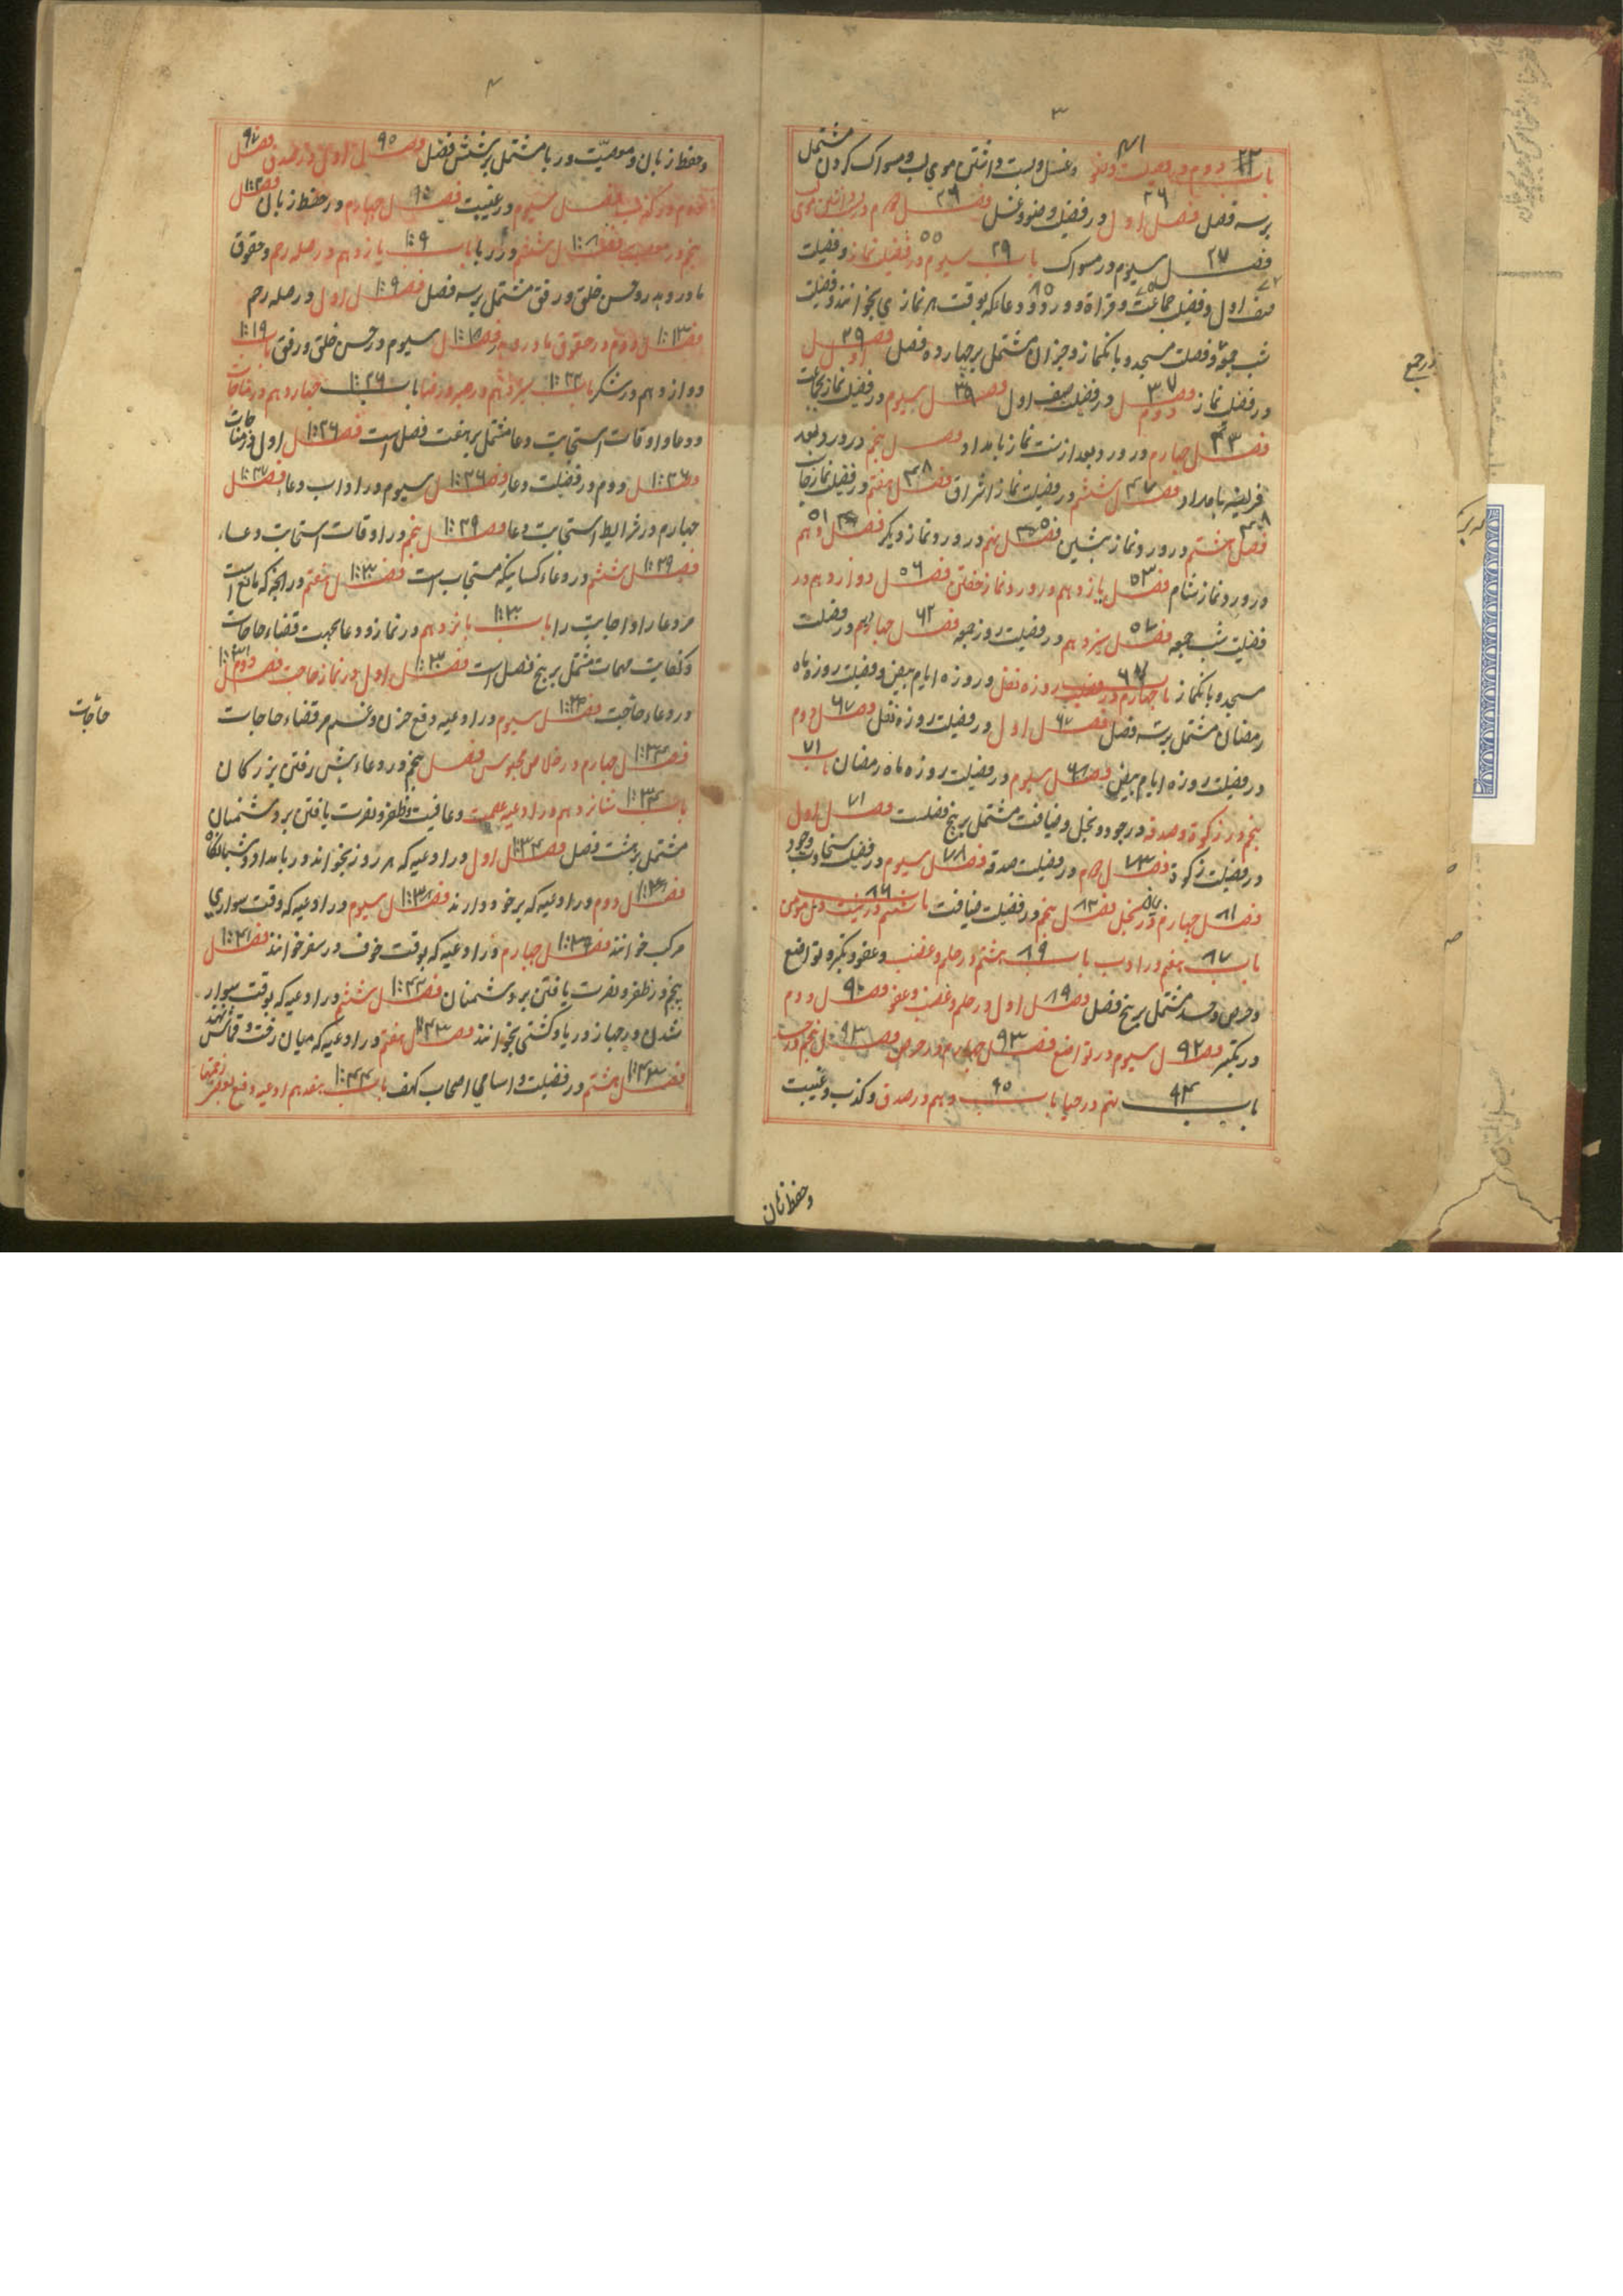 ۳
باب دوم در فضیلت وضو وغسل وپست داشتن موی لب ومسواک کردن مشتمل
برسه فصل فصل اول در فضیلت وضو وغسل فصل دوم در پست داشتن موی لب
فصل سیوم در مسواک باب سیوم در فضیلت نماز وفضیلت
صف اول وفضیلت جماعت وقراة وورد ودعا که بوقت هر نمازی بخوانند وفضیلت
شب جمعه وفضیلت مسجد وبانکنماز وجزان مشتمل برچهارده فصل فصل اول
در فضیلت نماز فصل دوم در فضیلت صف اول فصل سیوم در فضیلت نماز بجماعت
فصل چهارم در ورد بعد از سنت نماز بامداد فصل پنجم در ورد بعد
فریضه بامداد فصل ششم در فضیلت نماز اشراق فصل هفتم در فضیلت نماز چاشت
فصل هشتم در ورد نماز پیشین فصل نهم در ورد نماز دیکر فصل دهم
در ورد نماز شام فصل یازدهم در ورد نماز خفتن فصل دوازدهم در
فضیلت شب جمعه فصل سیزدهم در فضیلت روز جمعه فصل چهاردهم در فضیلت
مسجد وبانکنماز باب چهارم در فضیلت روزه نفل وروزه ایام بیض وفضیلت روزه ماه
رمضان مشتمل برسه فصل فصل اول در فضیلت روزه نفل فصل دوم
در فضیلت روزه ایام بیض فصل سیوم در فضیلت روزه ماه رمضان باب
پنجم در زکوة وصدقه ودرجود وبخل وضیافت مشتمل بر پنج فصلست فصل اول
در فضیلت زکوة فصل دوم در فضیلت صدقه فصل سیوم در فضیلت سخاوت وجود
فصل چهارم در بخل فصل پنجم در فضیلت ضیافت باب ششم در
باب هفتم در ادب باب هشتم در حلم وغضب وعفو وتکبر وتواضع
وحرص وحسد مشتمل بر پنج فصل فصل اول در حلم وغضب وعفو فصل دوم
در تکبر فصل سیوم در تواضع فصل چهارم در حرص فصل پنجم در حسد
باب نهم در حیا باب دهم در صدق وکذب وغیبت
وحفظ زبان
۴
وحفظ زبان ومصیبت وریا مشتمل برشش فصل فصل اول در صدق فصل
دوم در کذب فصل سیوم در غیبت فصل چهارم در حفظ زبان فصل
پنجم در مصیبت فصل ششم در ریا باب یازدهم در صله رحم وحقوق
مادر وپدر وحسن خلق ورفق مشتمل برسه فصل فصل اول در صله رحم
فصل دوم در حقوق مادر وپدر فصل سیوم در حسن خلق ورفق باب
دوازدهم در شکر باب سیزدهم در صبر ورضا باب چهاردهم در مناجات
ودعا واوقات استجابت دعا مشتمل برهفت فصل است فصل اول در مناجات
فصل دوم در فضیلت دعا فصل سیوم در اداب دعا فصل
چهارم در شرایط استجابت دعا فصل پنجم در اوقات استجابت دعاء
فصل ششم در دعاء کسانیکه مستجاب است فصل هفتم در انچه که مانع است
مر دعا را واجابت را باب پانزدهم در نماز ودعا بجهت قضاء حاجات
وکفایت مهمات مشتمل بر پنج فصل است فصل اول در نماز حاجت فصل دوم
در دعاء حاجت فصل سیوم در ادعیه دفع حزن وغم مر قضاء حاجات
حاجات
فصل چهارم در خلاص محبوس فصل پنجم در دعاء پیش رفتن بزرکان
باب شانزدهم در ادعیه عصمت وعافیت وظفر ونصرت یافتن بر دشمنان
مشتمل برهشت فصل فصل اول در ادعیه که هر روز بخواند در بامداد وشبانکاه
فصل دوم در ادعیه که برخود دارند فصل سیوم در ادعیه که وقت سواری
مرکب خوانند فصل چهارم در ادعیه که بوقت خوف در سفر خوانند فصل
پنجم در ظفر ونصرت یافتن بر دشمنان فصل ششم در ادعیه که بوقت سوار
شدن در جهاز ودریا وکشتی بخوانند فصل هفتم در ادعیه که میان رخت وقماش نهند
فصل هشتم در فضیلت واسامی اصحاب کهف باب هفدهم ادعیه دفع